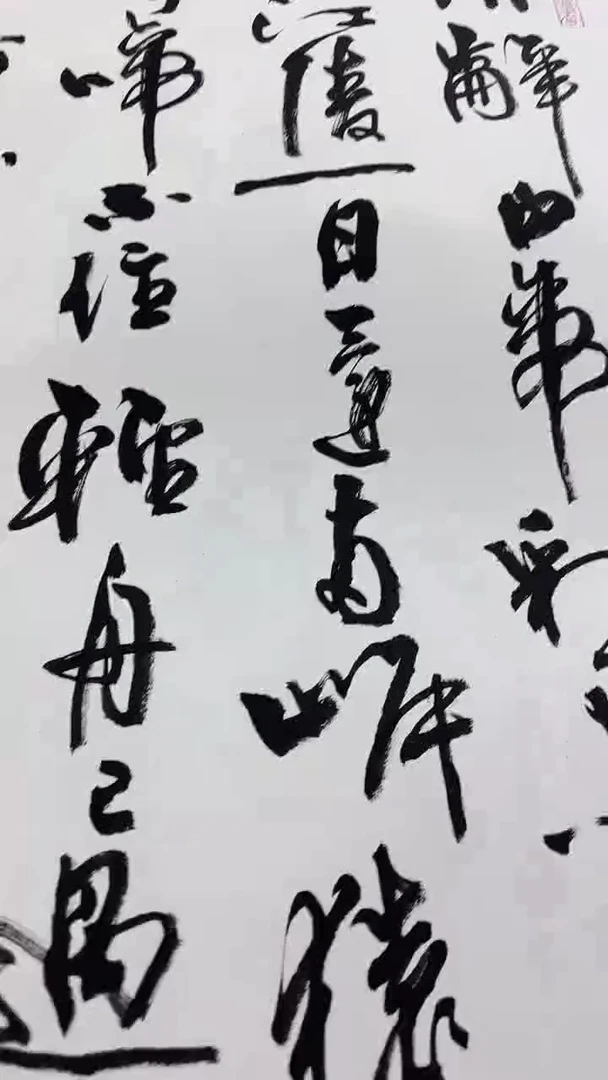 辭白帝彩
江陵一日還兩岸猿
啼不住輕舟已過